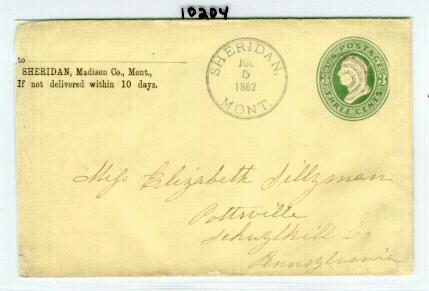 10204
to
SHERIDAN, Madison Co., Mont.,
If not delivered within 10 days.
SHERIDAN,
JUL
5
1882
MONT.
U.S. POSTAGE
THREE CENTS
3
Miss Elizabeth Sillyman
Pottsville
Schuylkill Co
Pennsylvania